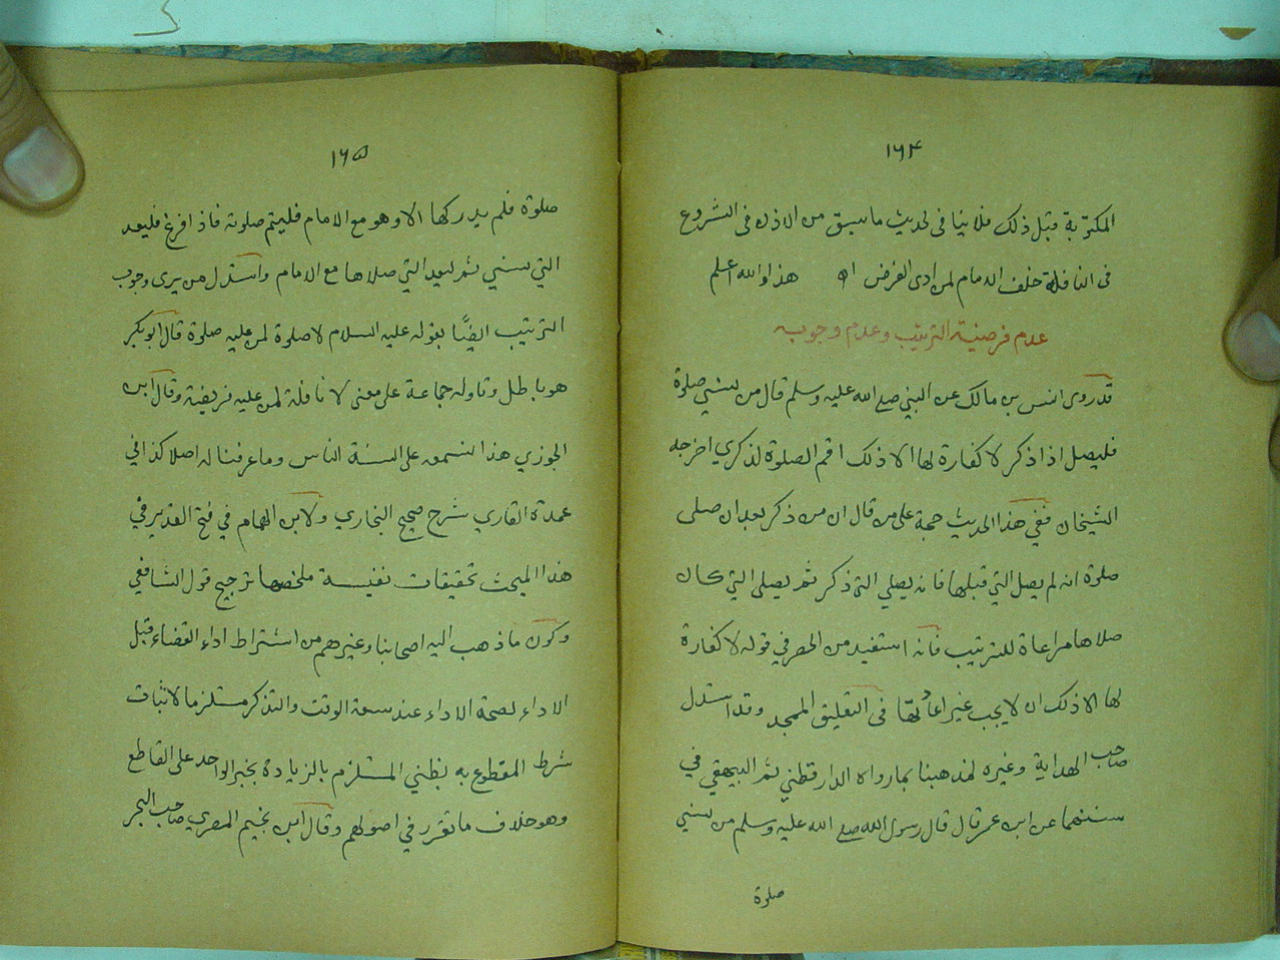 ۱۶۴
المكتوبة قبل ذلك فلا ينافى لحديث ما سبق من الاذن فى الشروع
فى النافلة خلف الامام لمن ادى الفرض اه هذا والله اعلم
عدم فرضية الترتيب وعدم وجوبه
قد روى انس بن مالك عن النبي صلے الله عليه وسلم قال من نسي صلوة
فليصل اذا ذكر لا كفارة لها الا ذلك اقم الصلوة لذكري اخرجه
الشيخان ففي هذا الحديث حجة على من قال ان من ذكر بعد ان صلى
صلوة انه لم يصل التي قبلها فانه يصلي التى ذكر ثم يصلى التي كان
صلاها مراعاة للترتيب فانه استفيد من الحصر في قوله لا كفارة
لها الا ذلك ان لا يجب غير اعادتها فى التعليق الممجد وقد استدل
صاحب الهداية وغيره لمذهبنا بما رواه الدارقطني ثم البيهقي في
سننهما عن ابن عمر قال قال رسول الله صلے الله عليه وسلم من نسي
صلوة
۱۶۵
صلوة فلم يدركها الا وهو مع الامام فليتم صلوته فاذا فرغ فليعد
التي نسي ثم ليعد التي صلاها مع الامام واستدل من يرى وجوب
الترتيب ايضًا بقوله عليه السلام لا صلوة لمن عليه صلوة قال ابو بكر
هو باطل وتاوله جماعة على معنى لا نافلة لمن عليه فريضة وقال ابن
الجوزي هذا نسمعه على السنة الناس وما عرفنا له اصلا كذا في
عمدة القاري شرح صحيح البخاري ولابن الهمام في فتح القدير في
هذا المبحث تحقيقات نفيسة ملخصها ترجيح قول الشافعي
وكون ما ذهب اليه اصحابنا وغيرهم من اشتراط اداء القضاء قبل
الاداء لصحة الاداء عند سعة الوقت والتذكر مستلزما لاثبات
شرط المقطوع به بظني المستلزم بالزيادة بخبر الواحد على القاطع
وهو خلاف ما تقرر في اصولهم وقال ابن نجيم المصري صاحب البحر